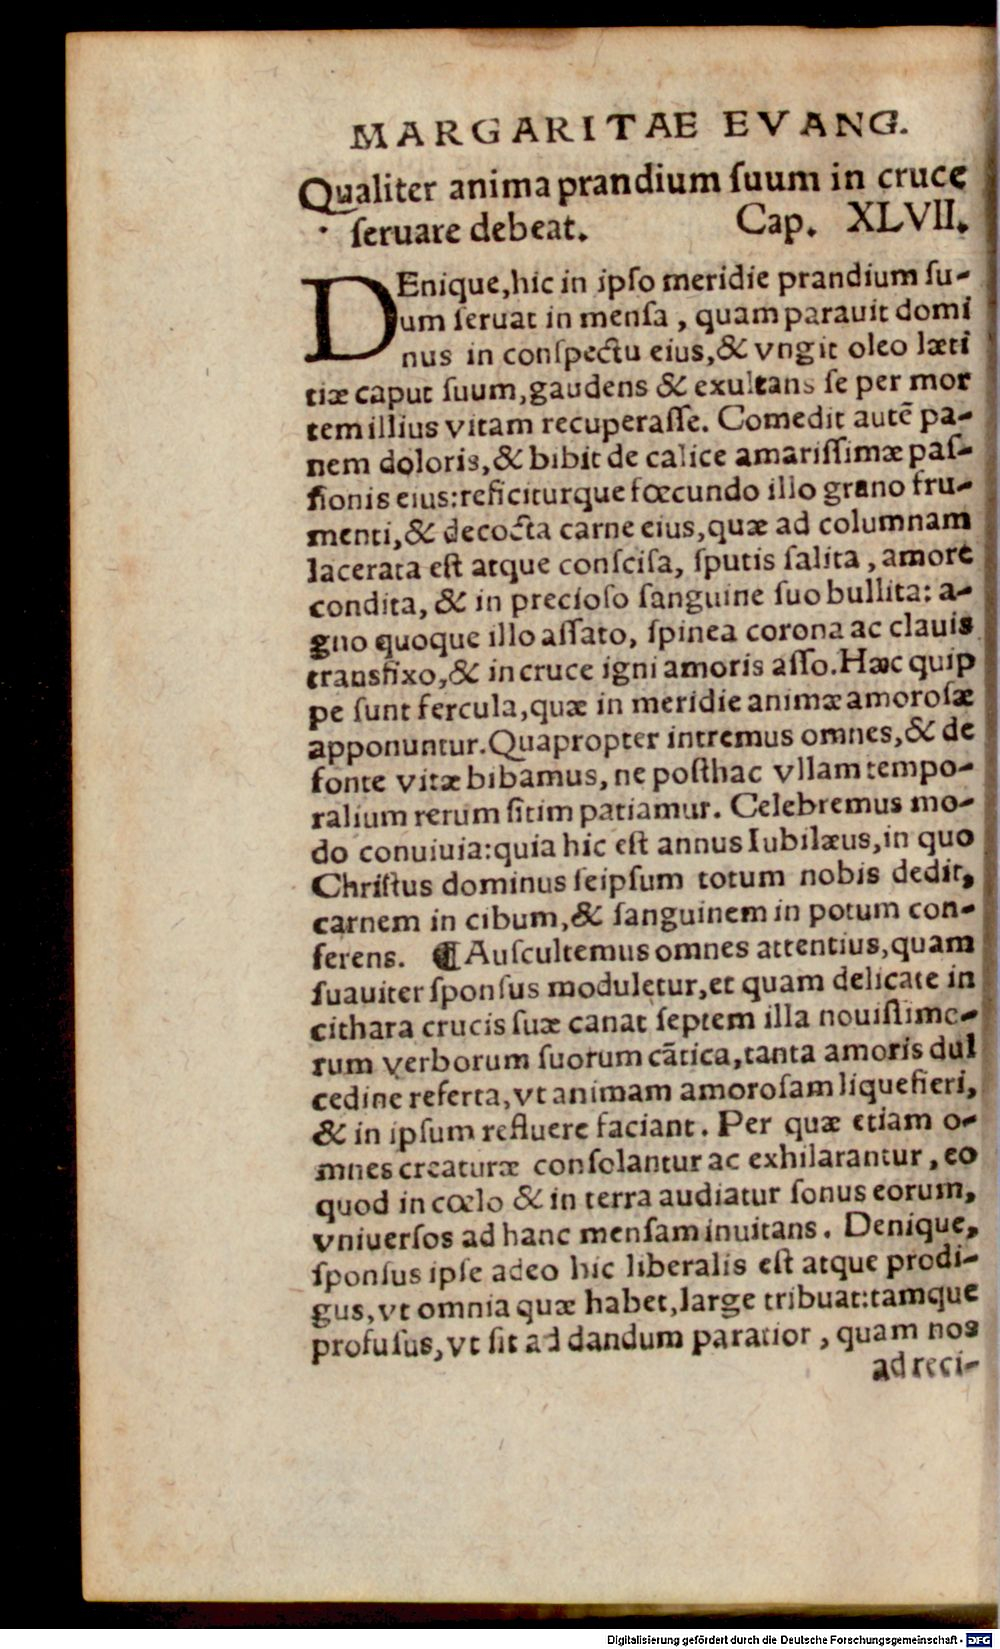 MARGARITAE EVANG.
Qualiter anima prandium ſuum in cruce
ſeruare debeat. Cap. XLVII.
DEnique, hic in ipſo meridie prandium ſu-
um ſeruat in menſa, quam parauit domi
nus in conſpectu eius, & vngit oleo læti
tiæ caput ſuum, gaudens & exultans ſe per mor
tem illius vitam recuperaſſe. Comedit autē pa-
nem doloris, & bibit de calice amariſſimæ paſ-
ſionis eius: reficiturque fœcundo illo grano fru-
menti, & decocta carne eius, quæ ad columnam
lacerata eſt atque conſciſa, ſputis ſalita, amore
condita, & in precioſo ſanguine ſuo bullita: a-
gno quoque illo aſſato, ſpinea corona ac clauis
transfixo, & in cruce igni amoris aſſo. Hæc quip
pe ſunt fercula, quæ in meridie animæ amoroſæ
apponuntur. Quapropter intremus omnes, & de
fonte vitæ bibamus, ne poſthac vllam tempo-
ralium rerum ſitim patiamur. Celebremus mo-
do conuiuia: quia hic eſt annus Iubilæus, in quo
Chriſtus dominus ſeipſum totum nobis dedit,
carnem in cibum, & ſanguinem in potum con-
ferens. ¶ Auſcultemus omnes attentius, quam
ſuauiter ſponſus moduletur, et quam delicate in
cithara crucis ſuæ canat ſeptem illa nouiſſimo-
rum verborum ſuorum cātica, tanta amoris dul
cedine referta, vt animam amoroſam liquefieri,
& in ipſum refluere faciant. Per quæ etiam o-
mnes creaturæ conſolantur ac exhilarantur, eo
quod in cœlo & in terra audiatur ſonus eorum,
vniuerſos ad hanc menſam inuitans. Denique,
ſponſus ipſe adeo hic liberalis eſt atque prodi-
gus, vt omnia quæ habet, large tribuat: tamque
profuſus, vt ſit ad dandum paratior, quam nos
ad reci-
Digitalisierung gefördert durch die Deutsche Forschungsgemeinschaft - DFG